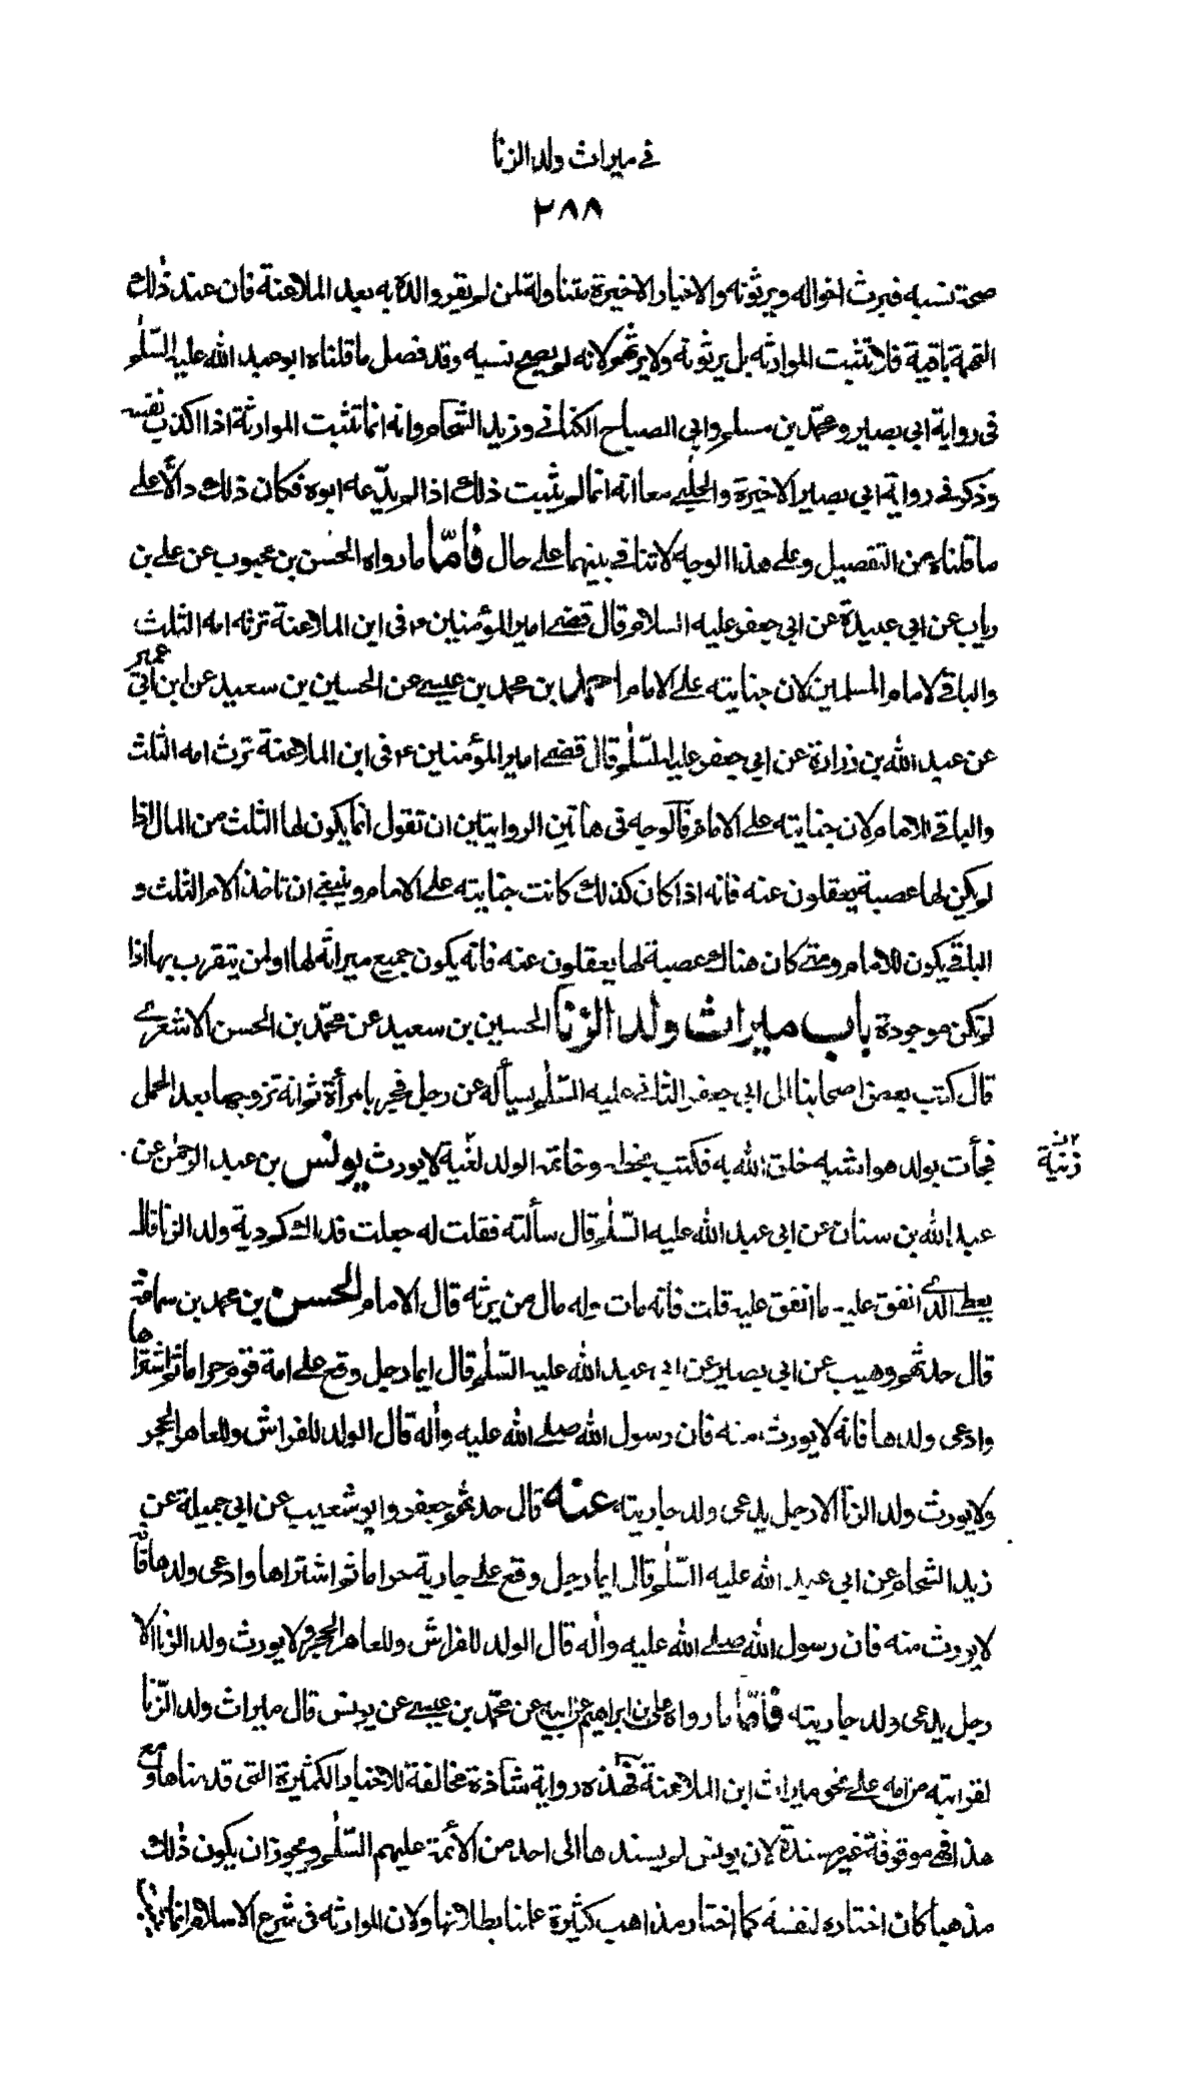 في ميراث ولد الزنا
٢٨٨
صحة نسبه فيرث اخواله ويرثونه والاخبار الاخيرة متناولة لمن لم يقر والده به بعد الملاعنة فان عند ذلك
التهمة باقية فلا تثبت الموارثة بل يرثونه ولا يرثهم لانه لم يصح نسبه وقد فصل ما قلناه ابو عبد الله عليه السلم
في رواية ابي بصير ومحمد بن مسلم وابي الصباح الكناني وزيد الشحام وانه انما تثبت الموارثة اذا اكذب نفسه
وذكر في رواية ابي بصير الاخيرة والحلبي معا انه انما لم يثبت ذلك اذا لم يدعه ابوه فكان ذلك دالا على
ما قلناه من التفصيل وعلى هذا الوجه لا تنافي بينهما على حال فاما ما رواه الحسن بن محبوب عن علي بن
رياب عن ابي عبيدة عن ابي جعفر عليه السلام قال قضى امير المؤمنين ٤ في ابن الملاعنة ترثه امه الثلث
والباقي لامام المسلمين لان جنايته على الامام احمد بن محمد بن عيسى عن الحسين بن سعيد عن ابن ابي عمير
عن عبد الله بن زرارة عن ابي جعفر عليه السلم قال قضى امير المؤمنين ٤ في ابن الملاعنة ترث امه الثلث
والباقي للامام لان جنايته على الامام فالوجه في هاتين الروايتين ان تقول انما يكون لها الثلث من المال اذا
لم يكن لها عصبة يعقلون عنه فانه اذا كان كذلك كانت جنايته على الامام وينبغي ان تاخذ الام الثلث و
الباقي يكون للامام ومتى كان هناك عصبة لها يعقلون عنه فانه يكون جميع ميراثه لها او لمن يتقرب بها اذا
لم تكن موجودة باب ميراث ولد الزنا الحسين بن سعيد عن محمد بن الحسن الاشعري
قال كتب بعض اصحابنا الى ابي جعفر الثاني عليه السلم يسأله عن رجل فجر بامرأة ثم انه تزوجها بعد الحمل
فجأت بولد هو اشبه خلق الله به فكتب بخطه وخاتمه الولد لغية لا يورث يونس بن عبد الرحمن عن
زنية
عبد الله بن سنان عن ابي عبد الله عليه السلم قال سألته فقلت له جعلت فداك كم دية ولد الزنا قال
يعطى الذي انفق عليه ما انفق عليه قلت فانه مات وله مال من يرثه قال الامام الحسن بن محمد بن سماعة
قال حدثهم وهيب عن ابي بصير عن ابي عبد الله عليه السلم قال ايما رجل وقع على امة قوم حراما ثم اشتراها
وادعى ولدها فانه لا يورث منه فان رسول الله صلى الله عليه وأله قال الولد للفراش وللعاهر الحجر
ولا يورث ولد الزنا الا رجل يدعى ولد جاريته عنه قال حدثهم جعفر وابو شعيب عن ابي جميلة عن
زيد الشحام عن ابي عبد الله عليه السلم قال ايما رجل وقع على جارية حراما ثم اشتراها وادعى ولدها فانه
لا يورث منه فان رسول الله صلى الله عليه وأله قال الولد للفراش وللعاهر الحجر ولا يورث ولد الزنا الا
رجل يدعى ولد جاريته فأما ما رواه علي بن ابراهيم عن ابيه عن محمد بن عيسى عن يونس قال ميراث ولد الزنا
لقرابته من امه على نحو ميراث ابن الملاعنة فهذه رواية شاذة مخالفة للاخبار الكثيرة التي قدمناها ومع
هذا فهي موقوفة غير مسندة لان يونس لم يسندها الى احد من الأئمة عليهم السلم ويجوز ان يكون ذلك
مذهبا كان اختاره لنفسه كما اختار مذاهب كثيرة علمنا بطلانها ولان الموارثة في شرع الاسلام انما